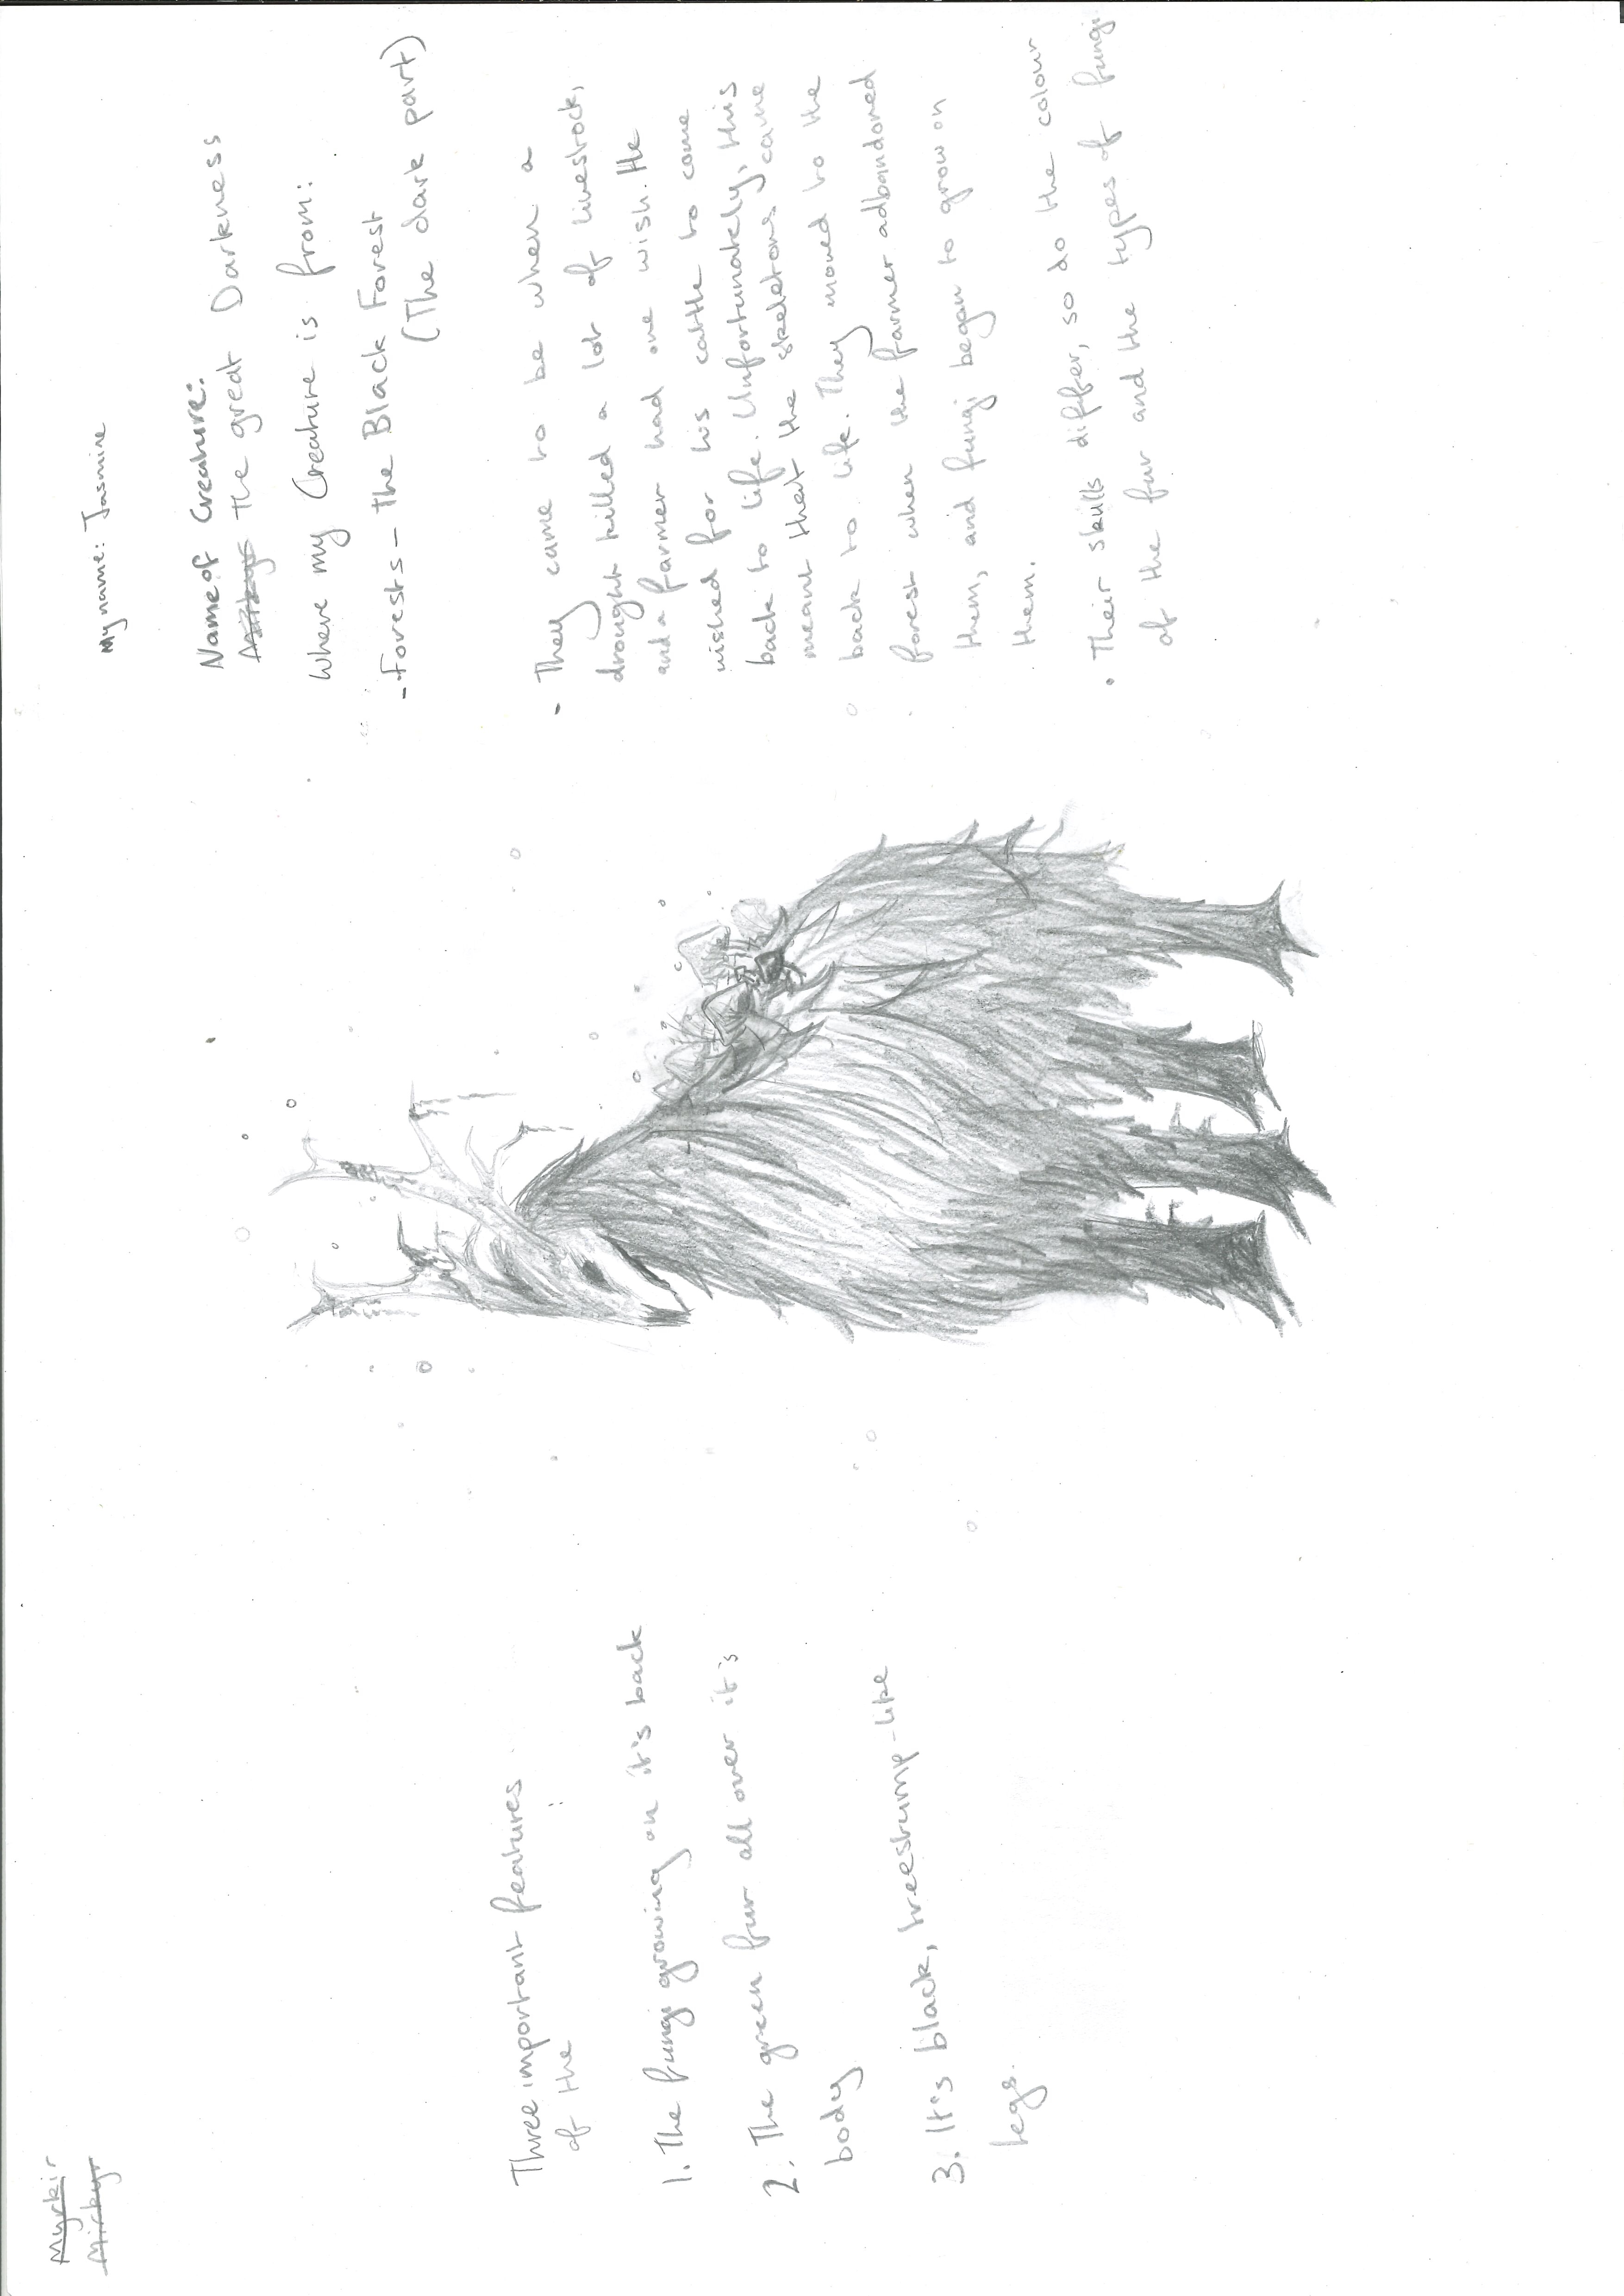 Myrkir
Mirkyr
Three important features
of the :
1. The fungi growing on it's back
2. The green fur all over it's
body
3. It's black, treestump-like
legs.
My name: Jasmine
Name of Creature:
The great Darkness
Where my Creature is from:
- Forests - the Black Forest
(The dark part)
• They came to be when a
drought killed a lot of livestock,
and a farmer had one wish. He
wished for his cattle to come
back to life. Unfortunately, this
meant that the skeletons came
back to life. They moved to the
forest when the farmer adbandoned
them, and fungi began to grow on
them.
• Their skulls differ, so do the colour
of the fur and the types of fungi